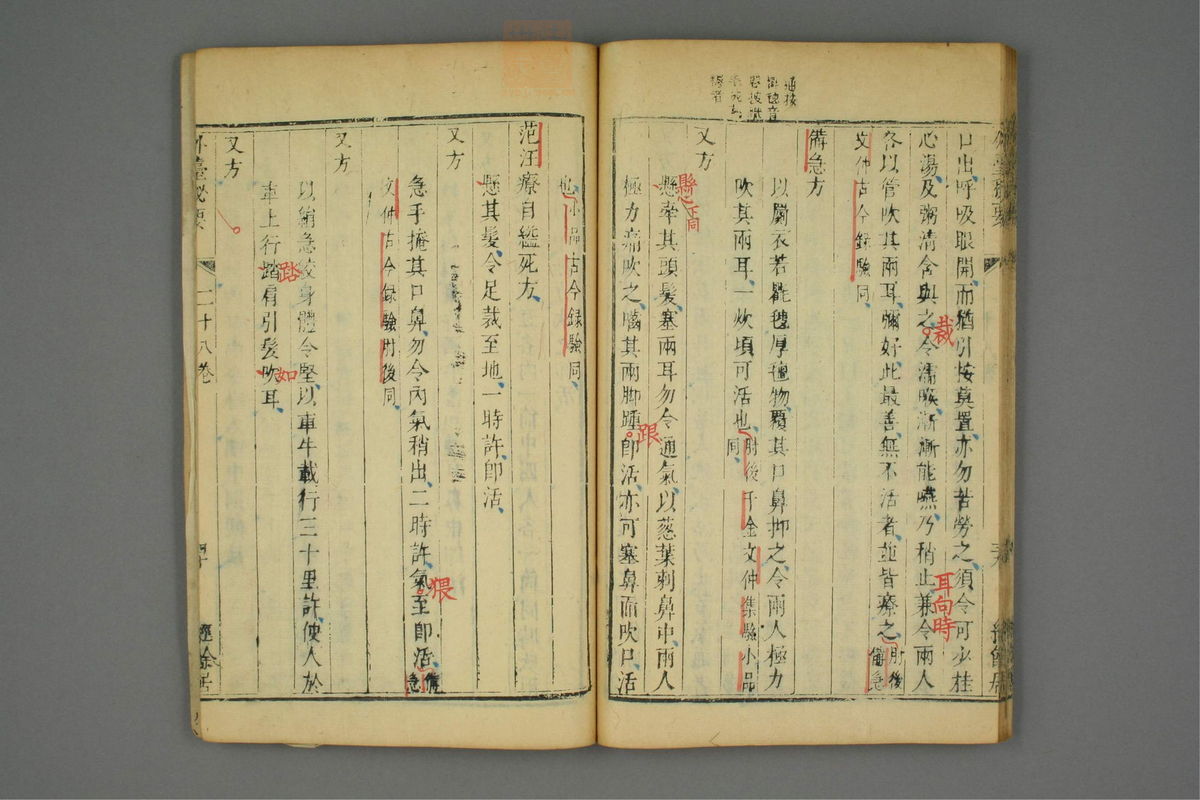 口出呼吸眼開而猶引按莫置亦勿苦勞之須令可少桂
心湯及粥清含與之令濡喉漸漸能嚥乃稍止兼令兩人
各以管吹其兩耳彌好此最善無不活者並皆療之肘後備急
文仲古今録驗同
備急方
以罽衣若氍毹厚氊物覆其口鼻抑之令兩人極力
吹其兩耳一炊頃可活也肘後千金文仲集驗小品同
又方
懸牽其頭髮塞兩耳勿令通氣以葱葉刺鼻中兩人
極力痛吹之嚙其兩脚踵卽活亦可塞鼻而吹口活
裁
耳向時
懸正同
跟
也小品古今録驗同
范汪療自縊死方
懸其髮令足裁至地一時許卽活
又方
急手掩其口鼻勿令內氣稍出二時許氣至卽活備急
文仲古今録驗肘後同
又方
以繩急絞身體令堅以車牛載行三十里許使人於
車上行踏肩引髮吹耳
又方
猥
踏
如
外臺秘要
二十八卷
經餘居